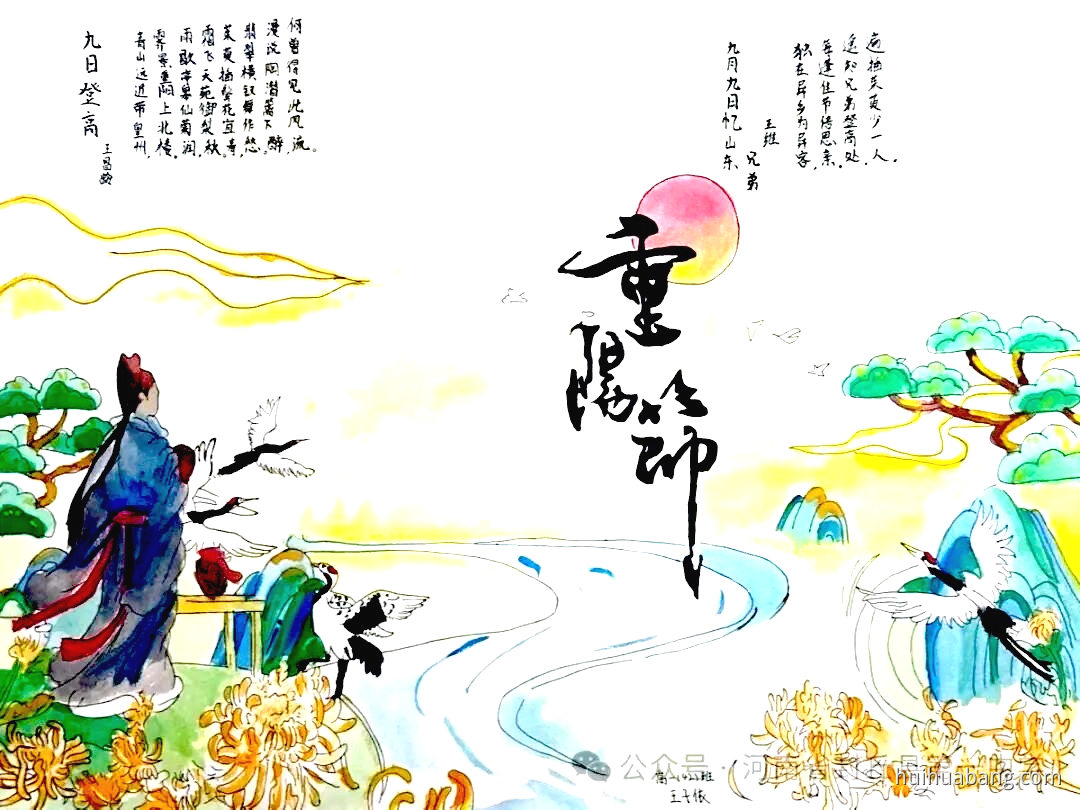 九日登高
王昌龄
青山远近带皇州，
霁景重阳上北楼。
雨歇亭皋仙菊润，
霜飞天苑御梨秋。
茱萸插鬓花宜寿，
翡翠横钗舞作愁。
漫说陶潜篱下醉，
何曾得见此风流。
九月九日忆山东
兄弟
王维
独在异乡为异客，
每逢佳节倍思亲。
遥知兄弟登高处，
遍插茱萸少一人。
重陽節
公众号 · 河南省
huihuabang.com